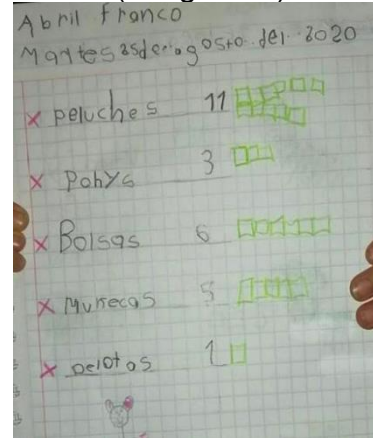 Abril Franco
Martes 25 de agosto del 2020
x peluches 11
x Ponys 3
x Bolsas 6
x Muñecas 5
x pelotas 1